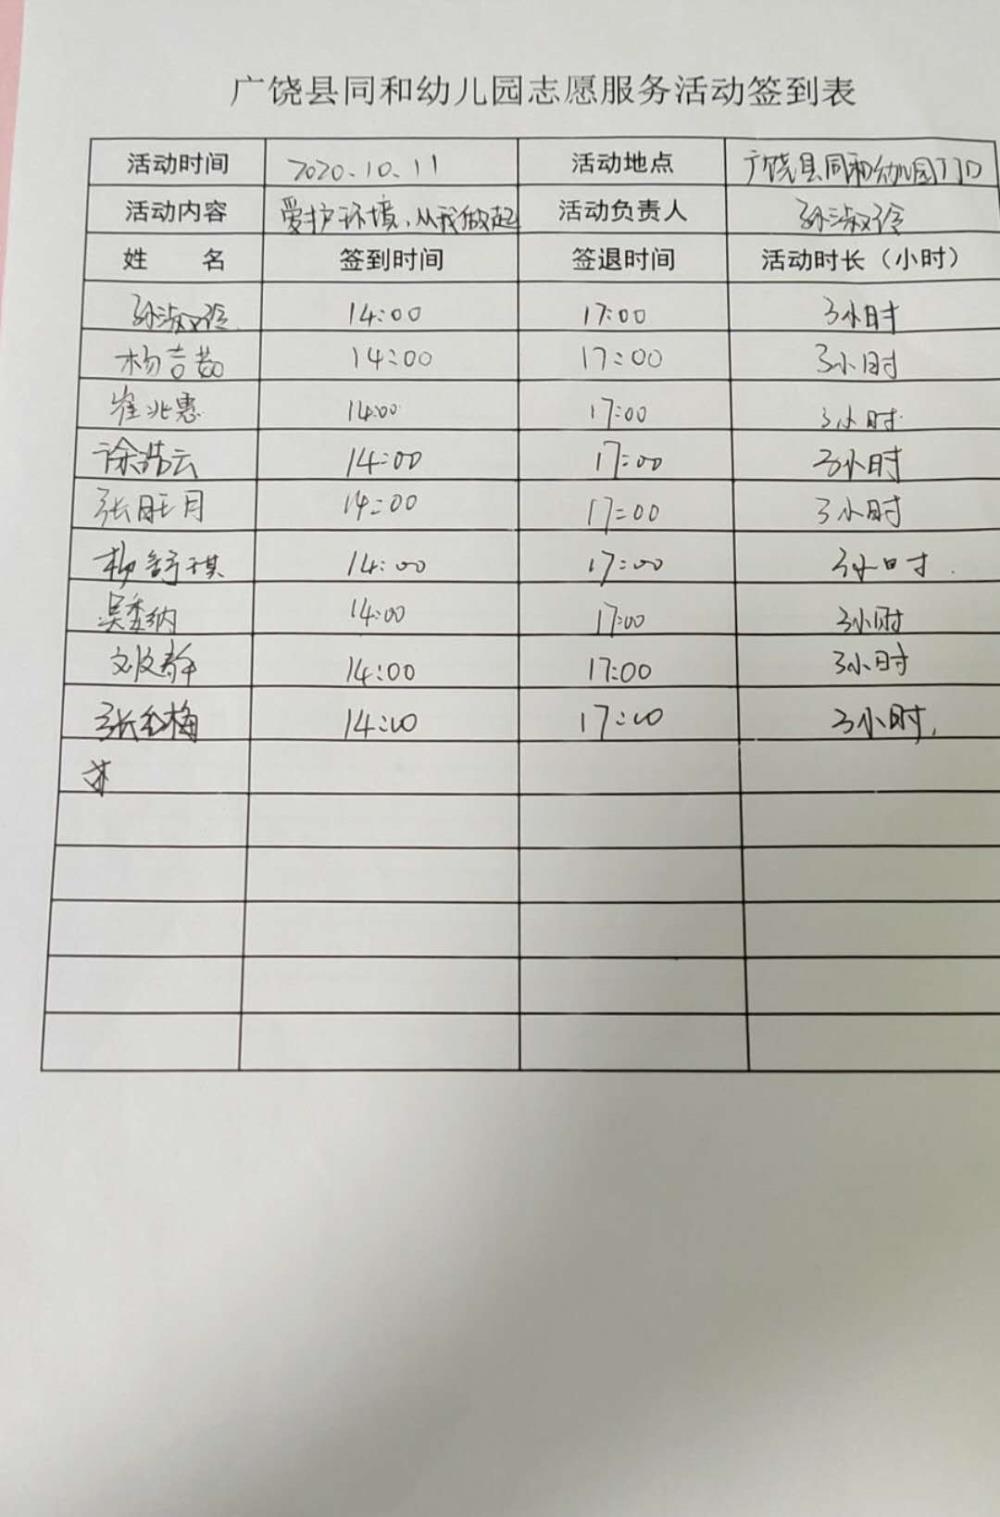 广饶县同和幼儿园志愿服务活动签到表
活动时间 2020.10.11 活动地点 广饶县同和幼儿园门口
活动内容 爱护环境,从我做起 活动负责人 孙淑玲
姓 名 签到时间 签退时间 活动时长(小时)
孙淑玲 14:00 17:00 3小时
杨吉茹 14:00 17:00 3小时
崔兆惠 14:00 17:00 3小时
徐浩云 14:00 17:00 3小时
张旺月 14:00 17:00 3小时
杨舒琪 14:00 17:00 3小时
吴秀纳 14:00 17:00 3小时
刘文静 14:00 17:00 3小时
张金梅 14:00 17:00 3小时